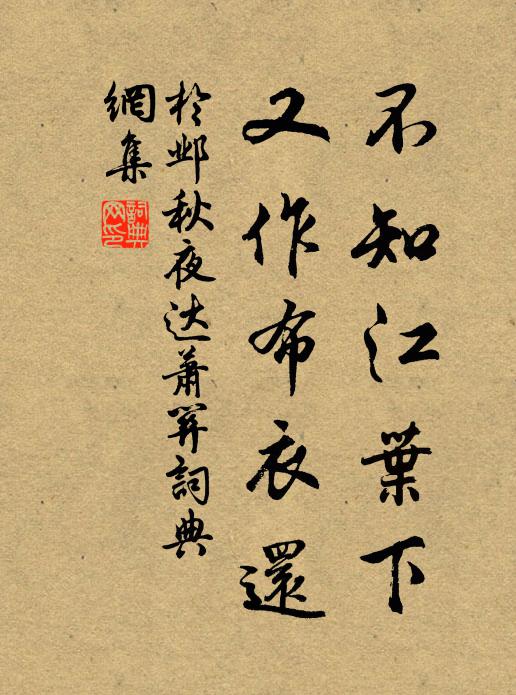 不知江葉下
又作布衣還
於邺秋夜达萧笄詞典
網集
詞典
网印